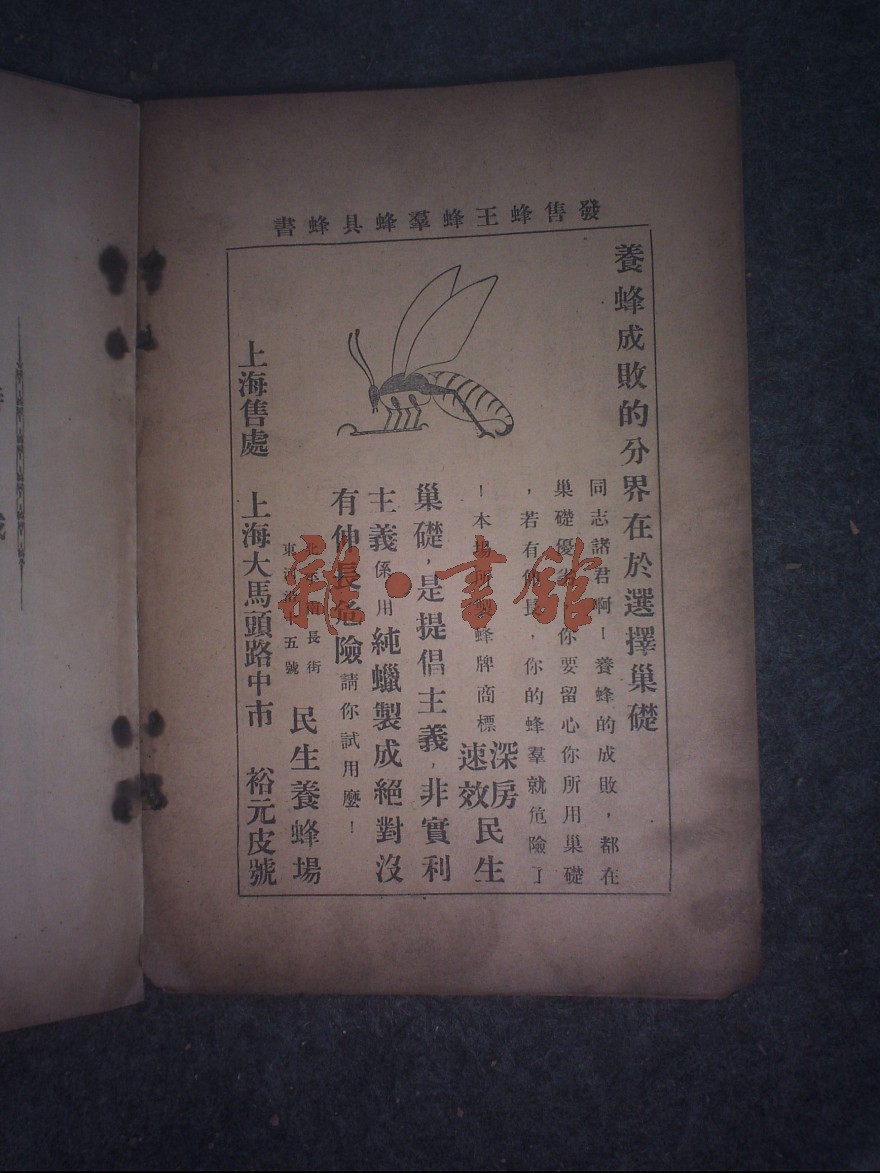 發售蜂王蜂羣蜂具蜂書
養蜂成敗的分界在於選擇巢礎
同志諸君啊！養蜂的成敗，都在
巢礎優劣 你要留心你所用巢礎
，若有伸長，你的蜂羣就危險了
！本場所製蜂牌商標
深房
速效
民生
巢礎，是提倡主義，非實利
主義係用純蠟製成絕對沒
有伸長危險請你試用麼！
南長街
東河沿十五號
民生養蜂場
上海售處 上海大馬頭路中市 裕元皮號
雜·書館